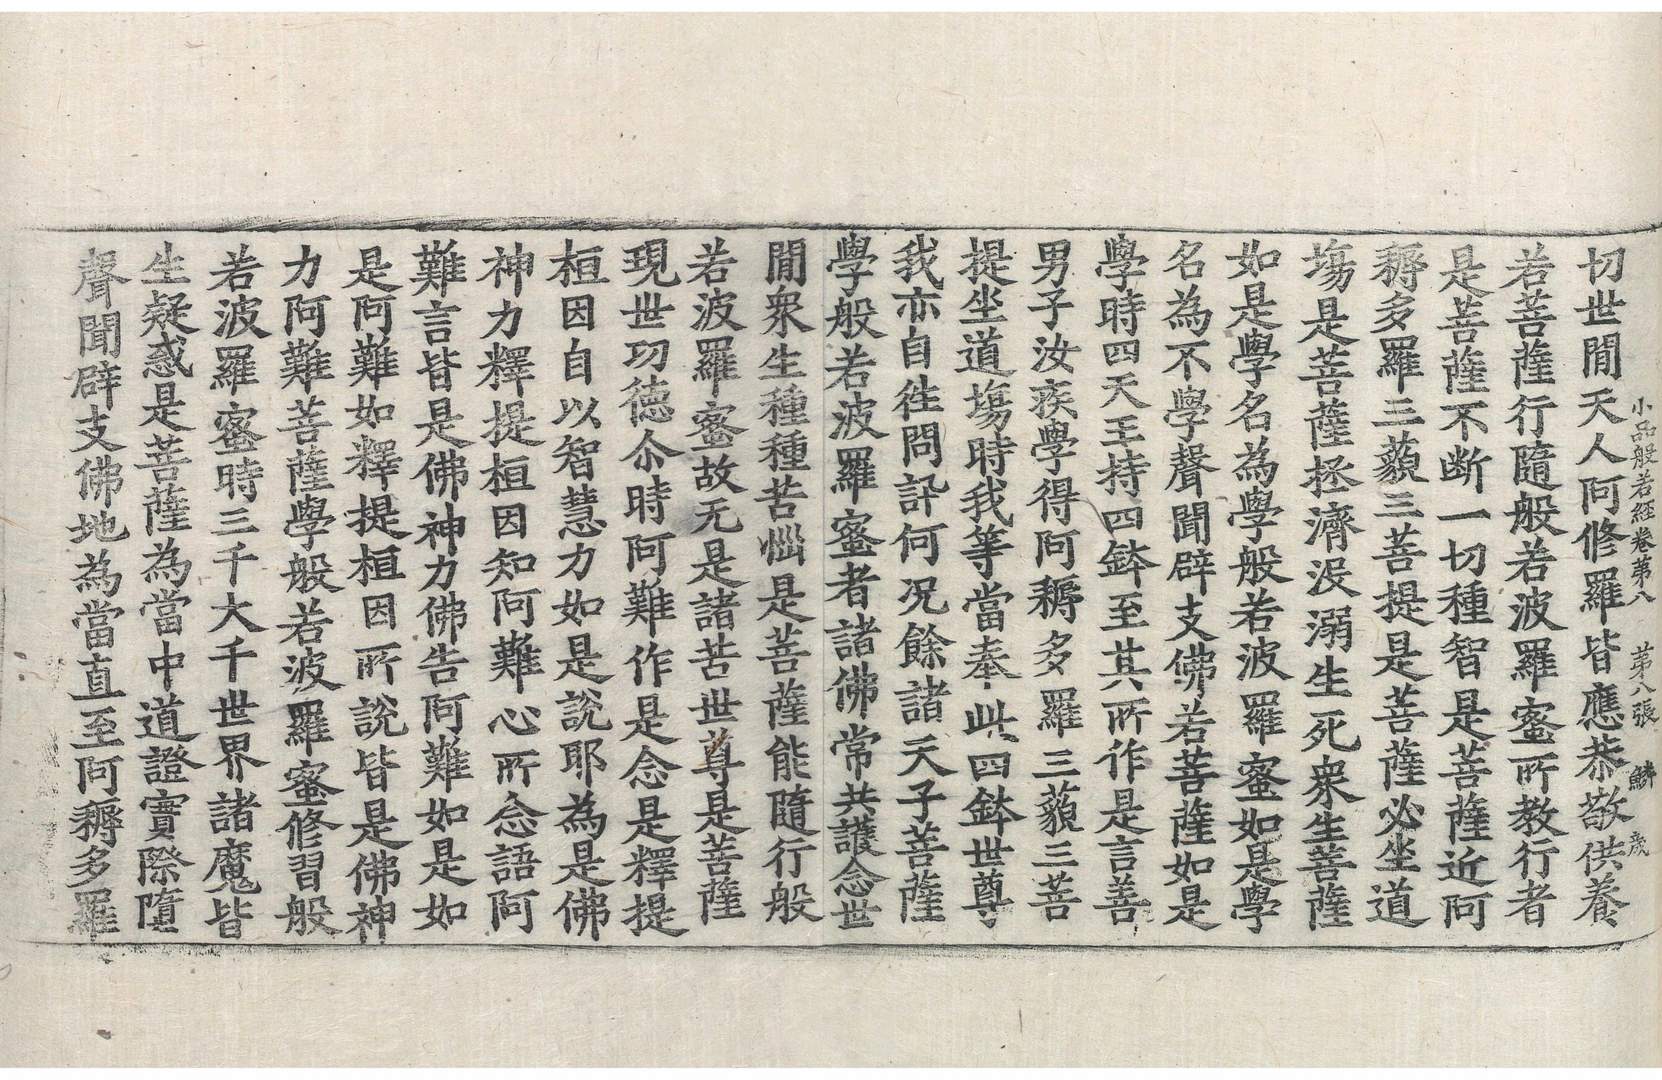 小品般若經卷第八　第八張　鱗　歲
切世間天人阿修羅皆應恭敬供養
若菩薩行隨般若波羅蜜所教行者
是菩薩不斷一切種智是菩薩近阿
耨多羅三藐三菩提是菩薩必坐道
場是菩薩拯濟没溺生死衆生菩薩
如是學名為學般若波羅蜜如是學
名為不學聲聞辟支佛若菩薩如是
學時四天王持四鉢至其所作是言善
男子汝疾學得阿耨多羅三藐三菩
提坐道場時我等當奉此四鉢世尊
我亦自往問訊何況餘諸天子菩薩
學般若波羅蜜者諸佛常共護念世
間衆生種種苦惱是菩薩能隨行般
若波羅蜜故无是諸苦世尊是菩薩
現世功德尒時阿難作是念是釋提
桓因自以智慧力如是說耶為是佛
神力釋提桓因知阿難心所念語阿
難言皆是佛神力佛告阿難如是如
是阿難如釋提桓因所說皆是佛神
力阿難菩薩學般若波羅蜜修習般
若波羅蜜時三千大千世界諸魔皆
生疑惑是菩薩為當中道證實際墮
聲聞辟支佛地為當直至阿耨多羅